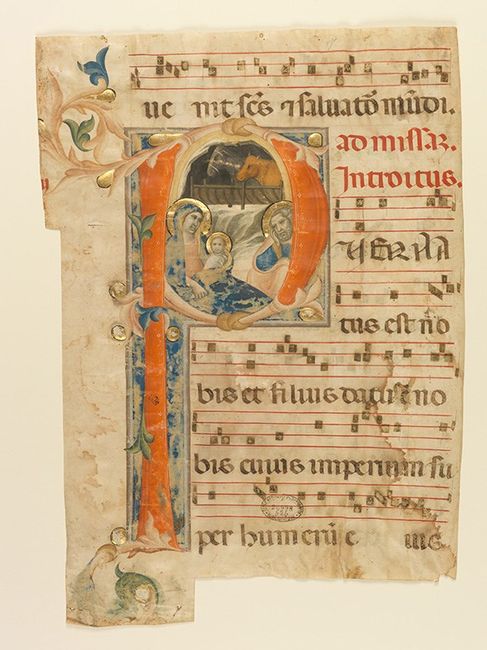 ue nit sc̄s ⁊ saluatō mūdi.
ad missaꝝ.
Introitus.
P VER NA
tus est no
bis et filius datus ē no
bis cuius imperium su
per humerū e ius